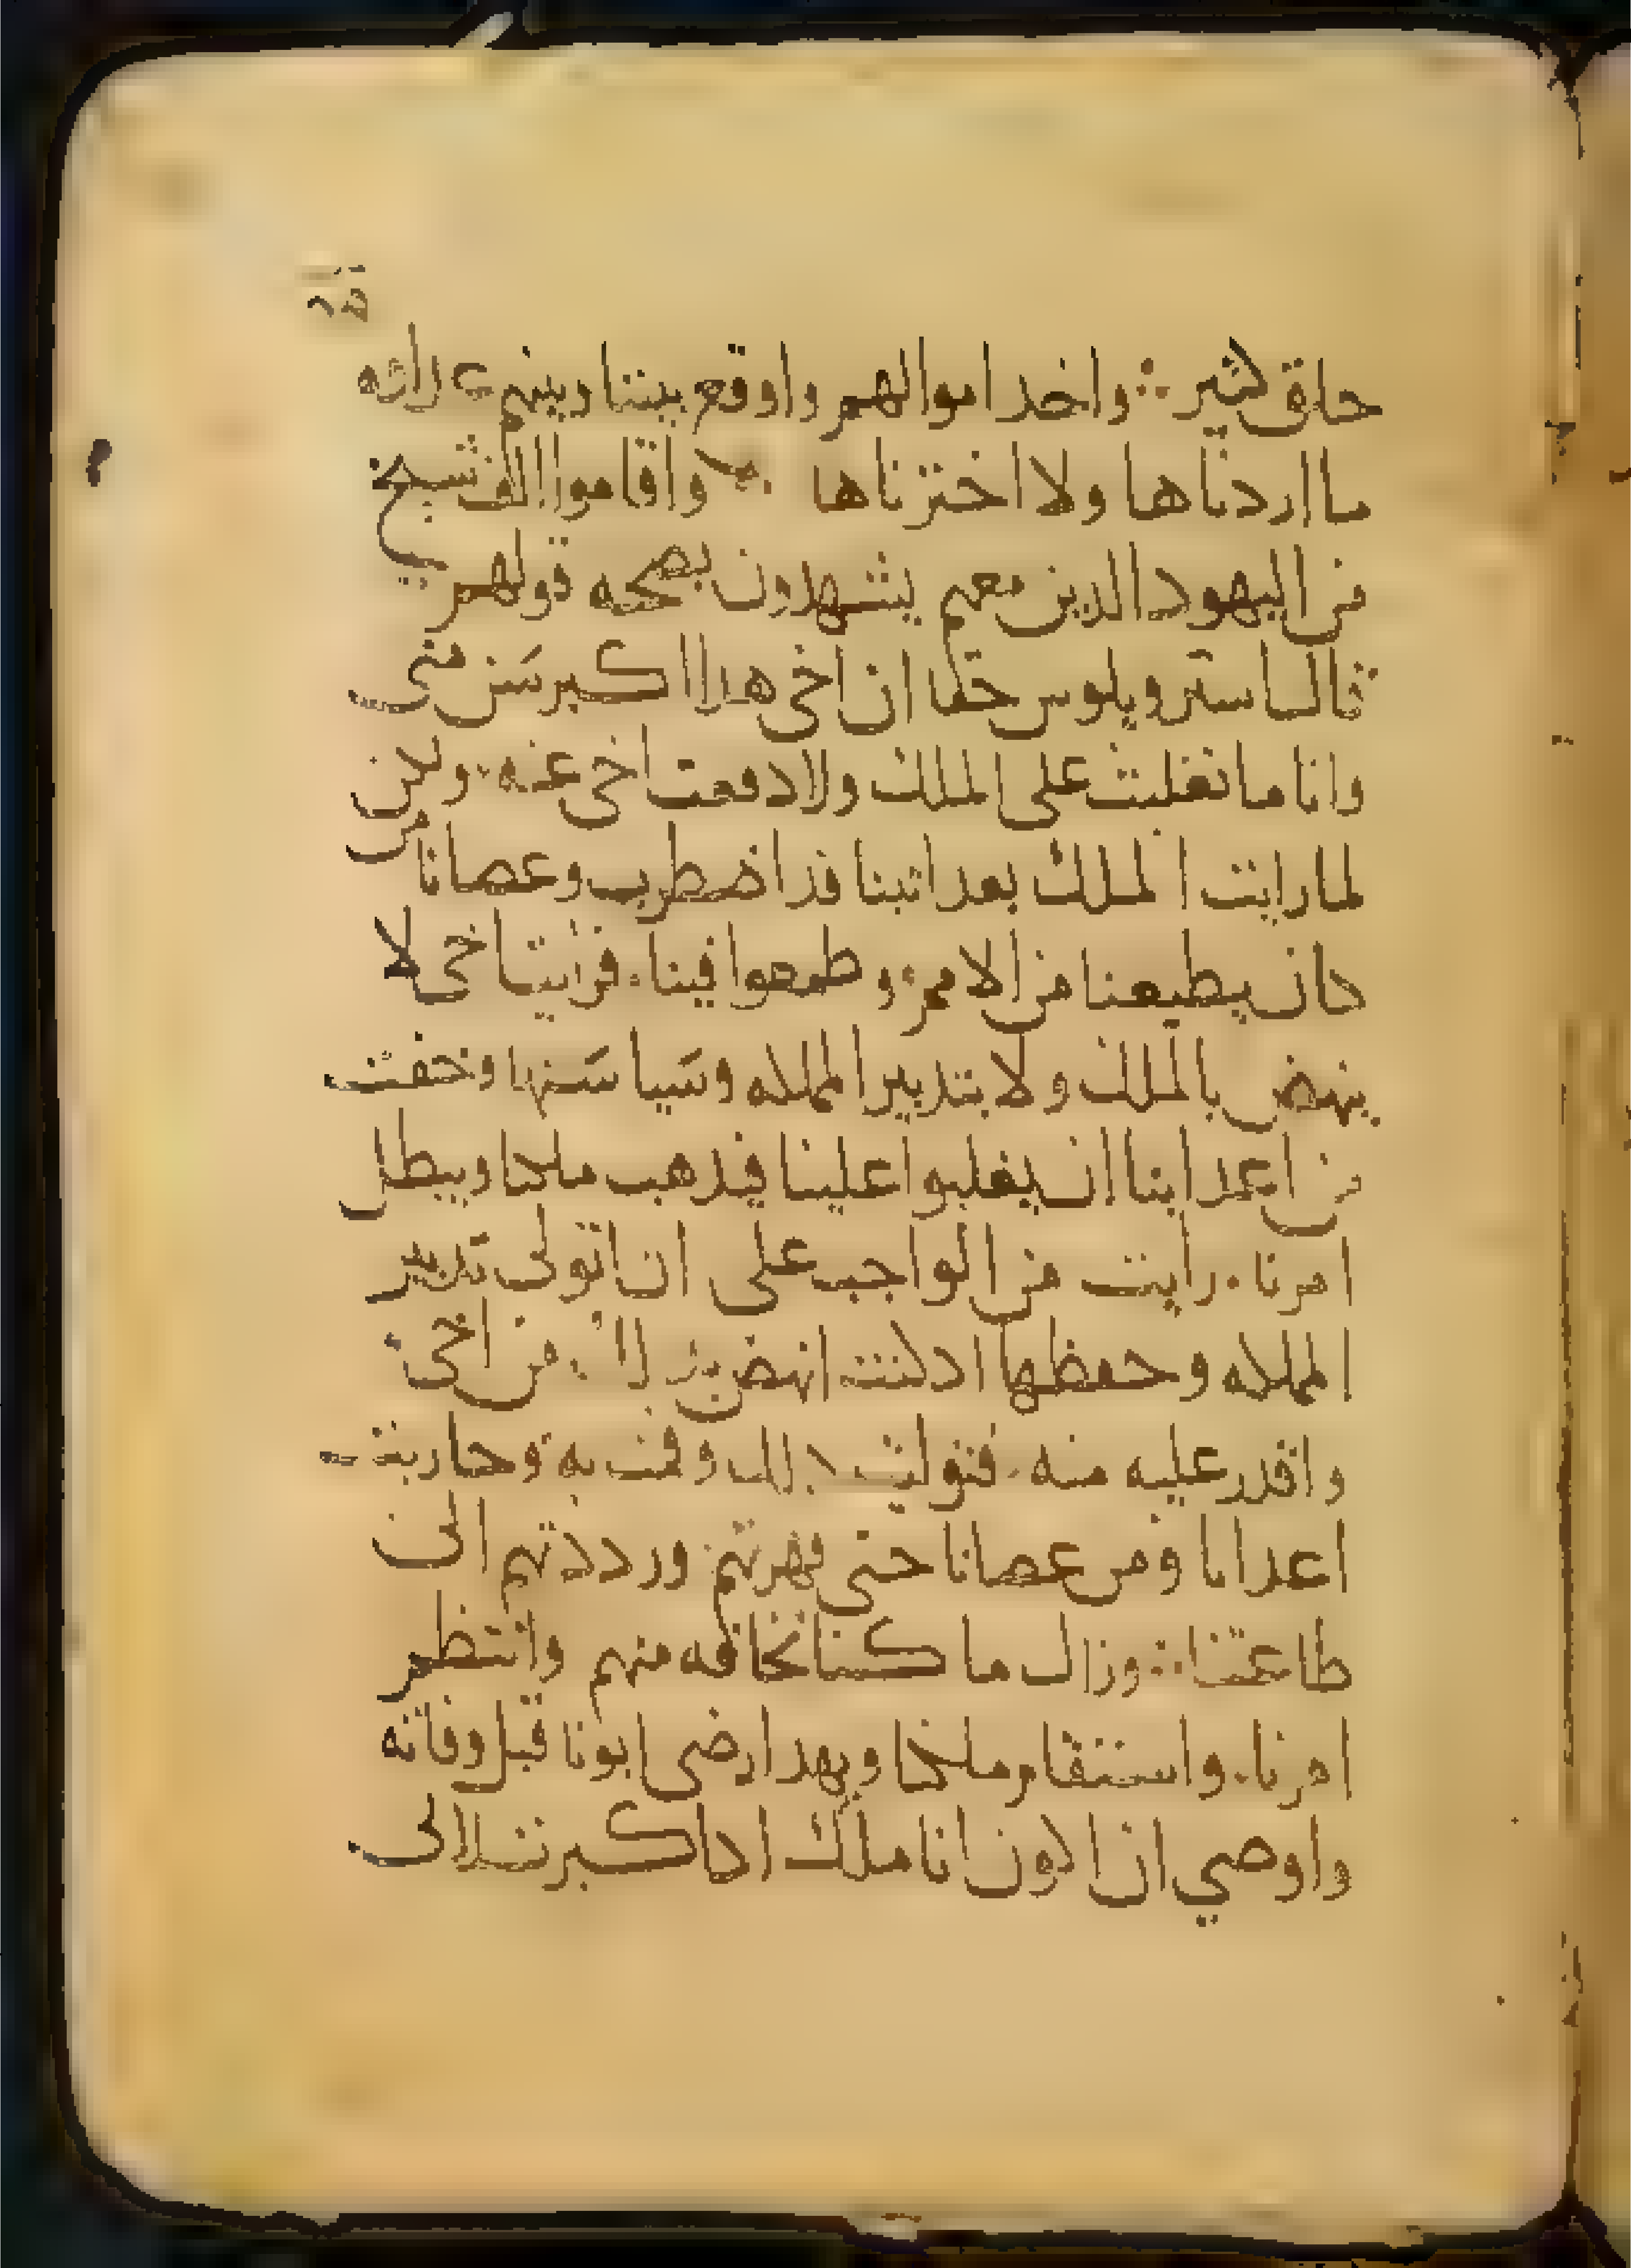 خلق كثير ⁘ واخد اموالهم واوقع بيننا وبينهم عداوه
ما اردناها ولا اخترناها واقاموا الف شيخ
من اليهود الدين معهم يشهدون بصحه قولهم
قال استروبلوس حقا ان اخي هدا اكبر سن مني
وانا ما تغلبت على الملك ولا دفعت اخي عنه ولكن
لما رايت الملك بعد ابينا قد اضطرب وعصانا من
كان يطيعنا من الامم وطمعوا فينا فرايت اخي لا
ينهض بالملك ولا بتدبير المملكه وسياستها وخفت
من اعداينا ان يغلبوا علينا فيدهب ملكنا ويبطل
امرنا رايت من الواجب علي ان اتولى تدبير
المملكه وحفظها اد كنت انهض من اخي
واقدر عليه منه فتوليت دلك وقمت به وحاربت
اعدانا ومن عصانا حتى قهرتهم ورددتهم الى
طاعتنا ⁘ وزال ما كنا نخافه منهم وانتظم
امرنا واستقام ملكنا وبهدا رضى ابونا قبل وفاته
واوصي ان اكون انا ملك اد اكبر